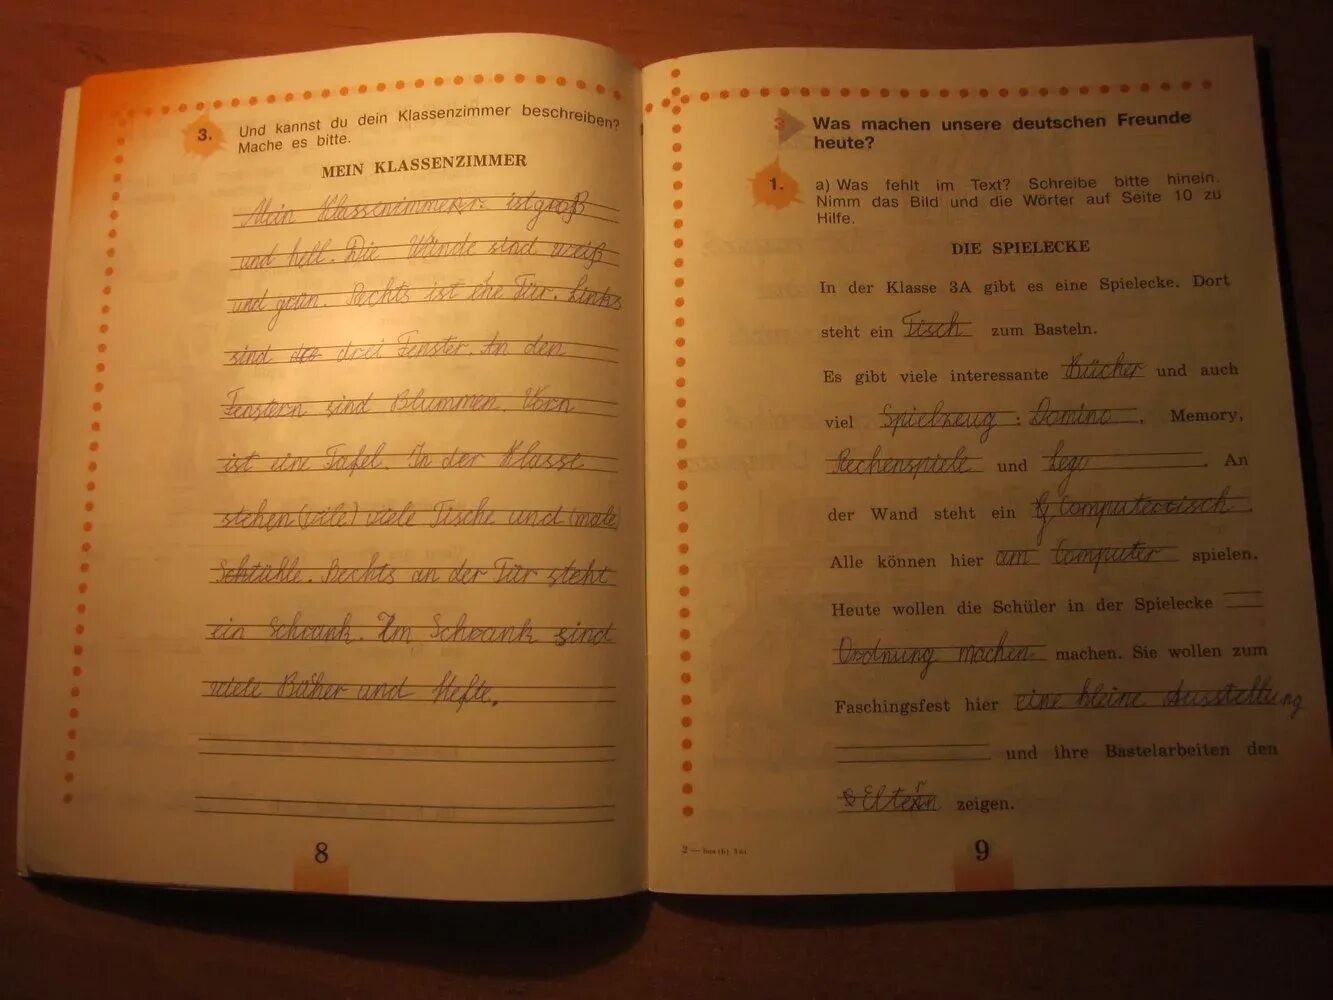 3. Und kannst du dein Klassenzimmer beschreiben?
Mache es bitte.
MEIN KLASSENZIMMER
Mein Klassenzimmer ist groß
und hell. Die Wände sind weiß
und grün. Rechts ist eine Tür. Links
sind drei Fenster. An den
Fenstern sind Blummen. Vorn
ist eine Tafel. In der Klasse
stehen (vile) viele Tische und (male)
Schtühle. Rechts an der Tür steht
ein Schrank. Im Schrank sind
viele Büher und Hefte.
8
3 Was machen unsere deutschen Freunde
heute?
1. a) Was fehlt im Text? Schreibe bitte hinein.
Nimm das Bild und die Wörter auf Seite 10 zu
Hilfe.
DIE SPIELECKE
In der Klasse 3A gibt es eine Spielecke. Dort
steht ein Tisch zum Basteln.
Es gibt viele interessante Bücher und auch
viel Spielzeug : Domino , Memory,
Rechenspiele und Lego . An
der Wand steht ein Computertisch .
Alle können hier am Computer spielen.
Heute wollen die Schüler in der Spielecke
Ordnung machen machen. Sie wollen zum
Faschingsfest hier eine kleine Ausstellung
und ihre Bastelarbeiten den
Eltern zeigen.
9